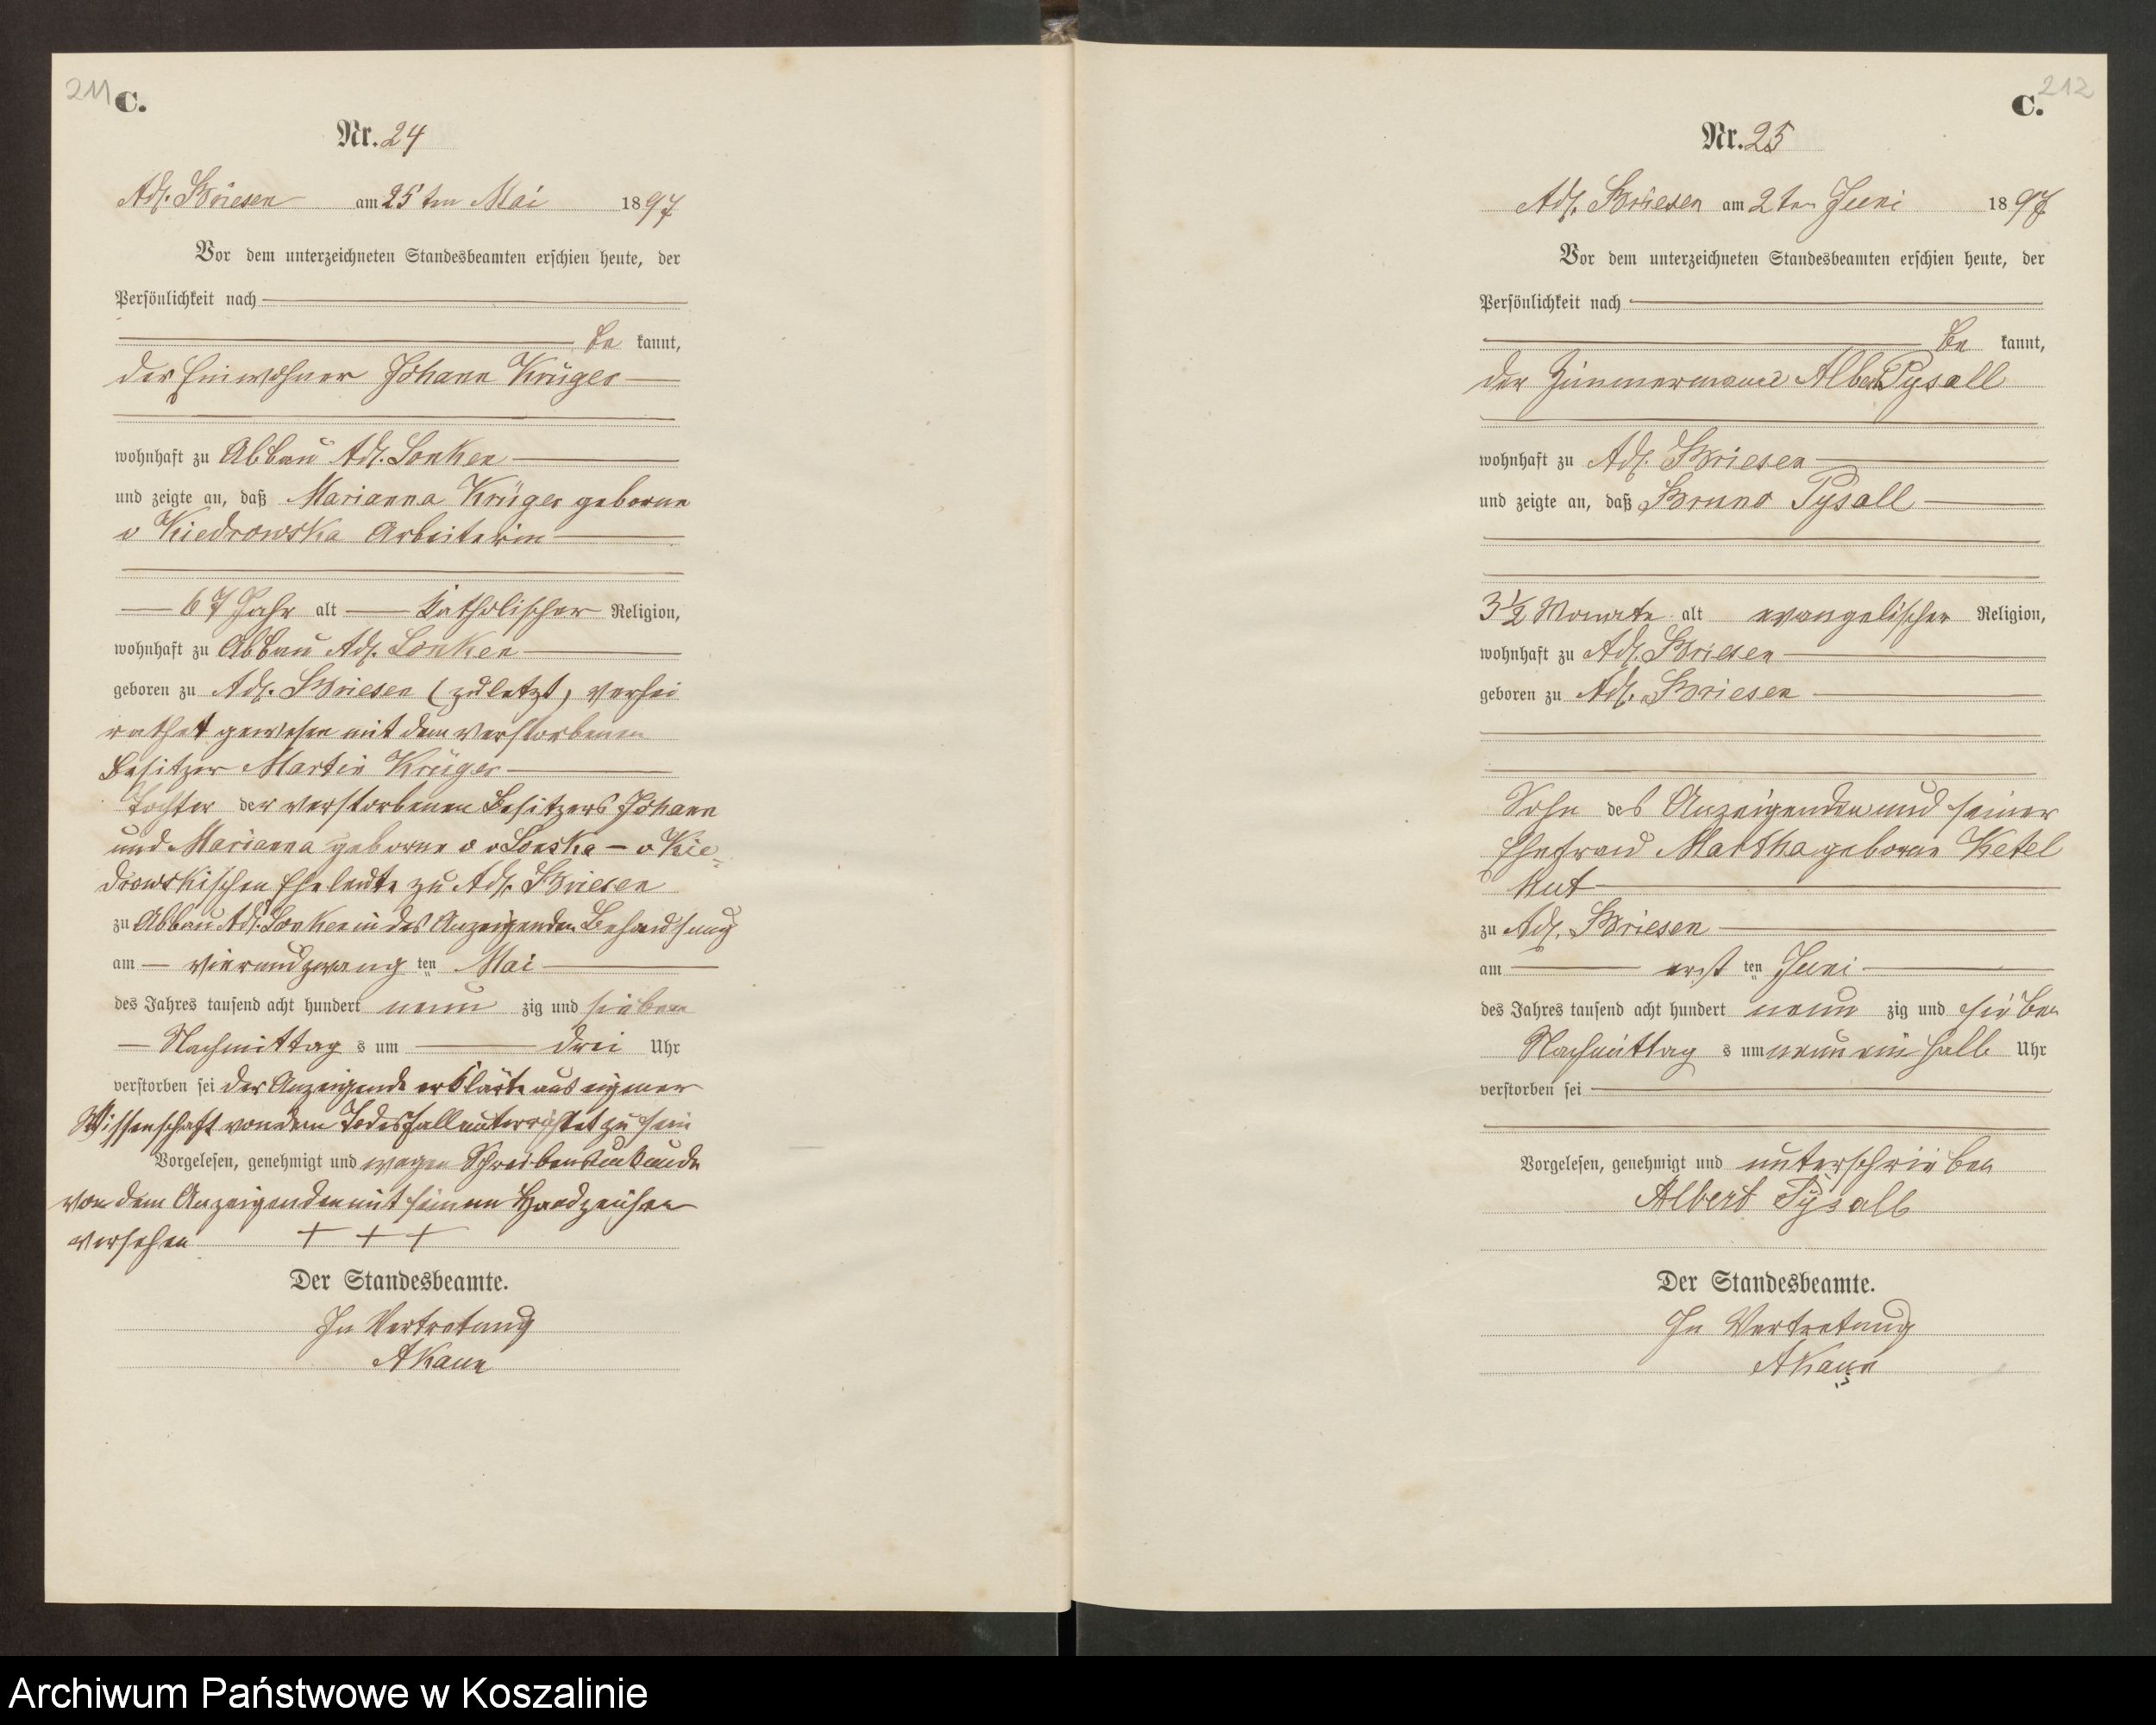 211 C.
Nr. 24
Adl. Briesen am 25ten Mai 1897
Vor dem unterzeichneten Standesbeamten erschien heute, der
Persönlichkeit nach
be kannt,
der Einwohner Johann Krüger
wohnhaft zu Abbau Adl. Lonken
und zeigte an, daß Marianna Krüger geborne
v Kiedrowska Arbeiterin
67 Jahr alt katholischer Religion,
wohnhaft zu Abbau Adl. Lonken
geboren zu Adl. Briesen (zuletzt) verhei
rathet gewesen mit dem verstorbenen
Besitzer Martin Krüger
Tochter der verstorbenen Besitzers Johann
und Marianna geborne v Lonska - v Kie=
drowskischen Eheleute zu Adl. Briesen
zu Abbau Adl. Lonken in des Anzeigenden Behausung
am vierundzwanzig ten Mai
des Jahres tausend acht hundert neun zig und sieben
Nachmittag s um drei Uhr
verstorben sei der Anzeigende erklärte aus eigener
Wissenschaft von dem Todesfall unterrichtet zu sein
Vorgelesen, genehmigt und wegen Schreibensunkunde
von dem Anzeigenden mit seinem Handzeichen
versehen + + +
Der Standesbeamte.
In Vertretung
A Kann
212
C.
Nr. 25
Adl. Briesen am 2ten Juni 1897
Vor dem unterzeichneten Standesbeamten erschien heute, der
Persönlichkeit nach
be kannt,
der Zimmermann Albert Pysall
wohnhaft zu Adl. Briesen
und zeigte an, daß Bruno Pysall
3 1/2 Monate alt evangelischer Religion,
wohnhaft zu Adl. Briesen
geboren zu Adl. Briesen
Sohn des Anzeigenden und seiner
Ehefrau Martha geborne Ketel
hut
zu Adl. Briesen
am erst ten Juni
des Jahres tausend acht hundert neun zig und sieben
Nachmittag s um neun ein halb Uhr
verstorben sei
Vorgelesen, genehmigt und unterschrieben
Albert Pysall
Der Standesbeamte.
In Vertretung
A Kann
Archiwum Państwowe w Koszalinie